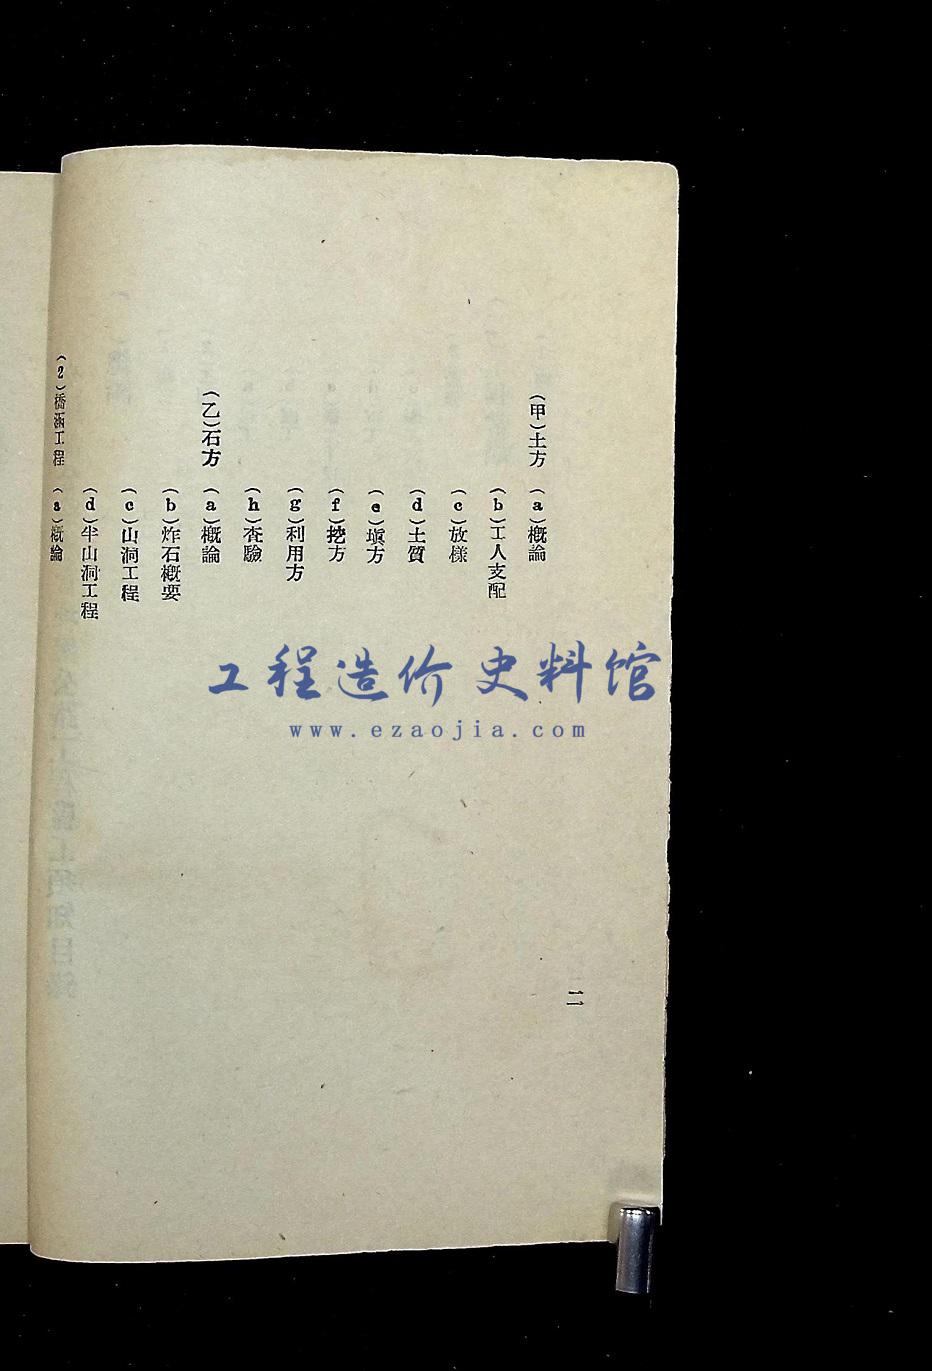 (甲)土方 (a)概論
(b)工人支配
(c)放樣
(d)土質
(e)塡方
(f)挖方
(g)利用方
(h)査驗
(乙)石方 (a)概論
(b)炸石概要
(c)山洞工程
(d)半山洞工程
(2)橋涵工程 (a)概論
二
工程造价史料馆
www.ezaojia.com